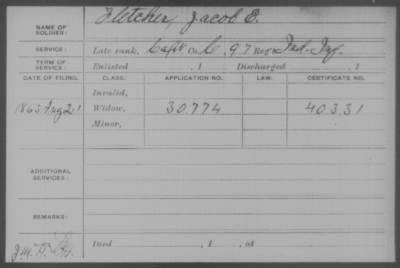 NAME OF SOLDIER: Fletcher, Jacob E.
SERVICE: Late rank, Capt Co. C, 97 Reg't Ind. Inf.
TERM OF SERVICE: Enlisted , 1 Discharged , 1
DATE OF FILING. CLASS. APPLICATION NO. LAW. CERTIFICATE NO.
Invalid,
1863 Aug 21 Widow, 30.774 40.331
Minor,
ADDITIONAL SERVICES:
REMARKS:
Died , 1 , at